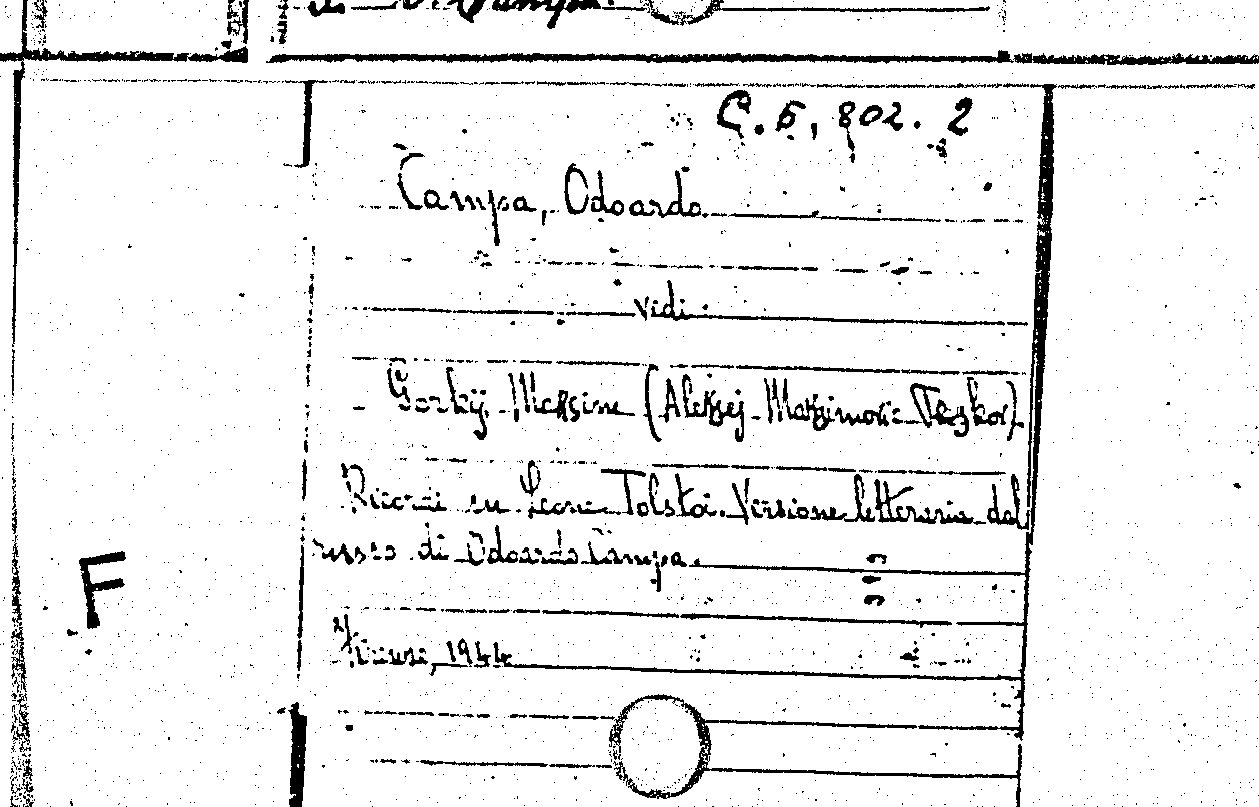 di O. Campa.
C. 5, 802. 2
Campa, Odoardo
vidi
Gorkij Maksim (Aleksej Maksimovic Peskov)
Ricordi su Leone Tolstoi. Versione letteraria dal
russo di Odoardo Campa.
F
Firenze, 1944